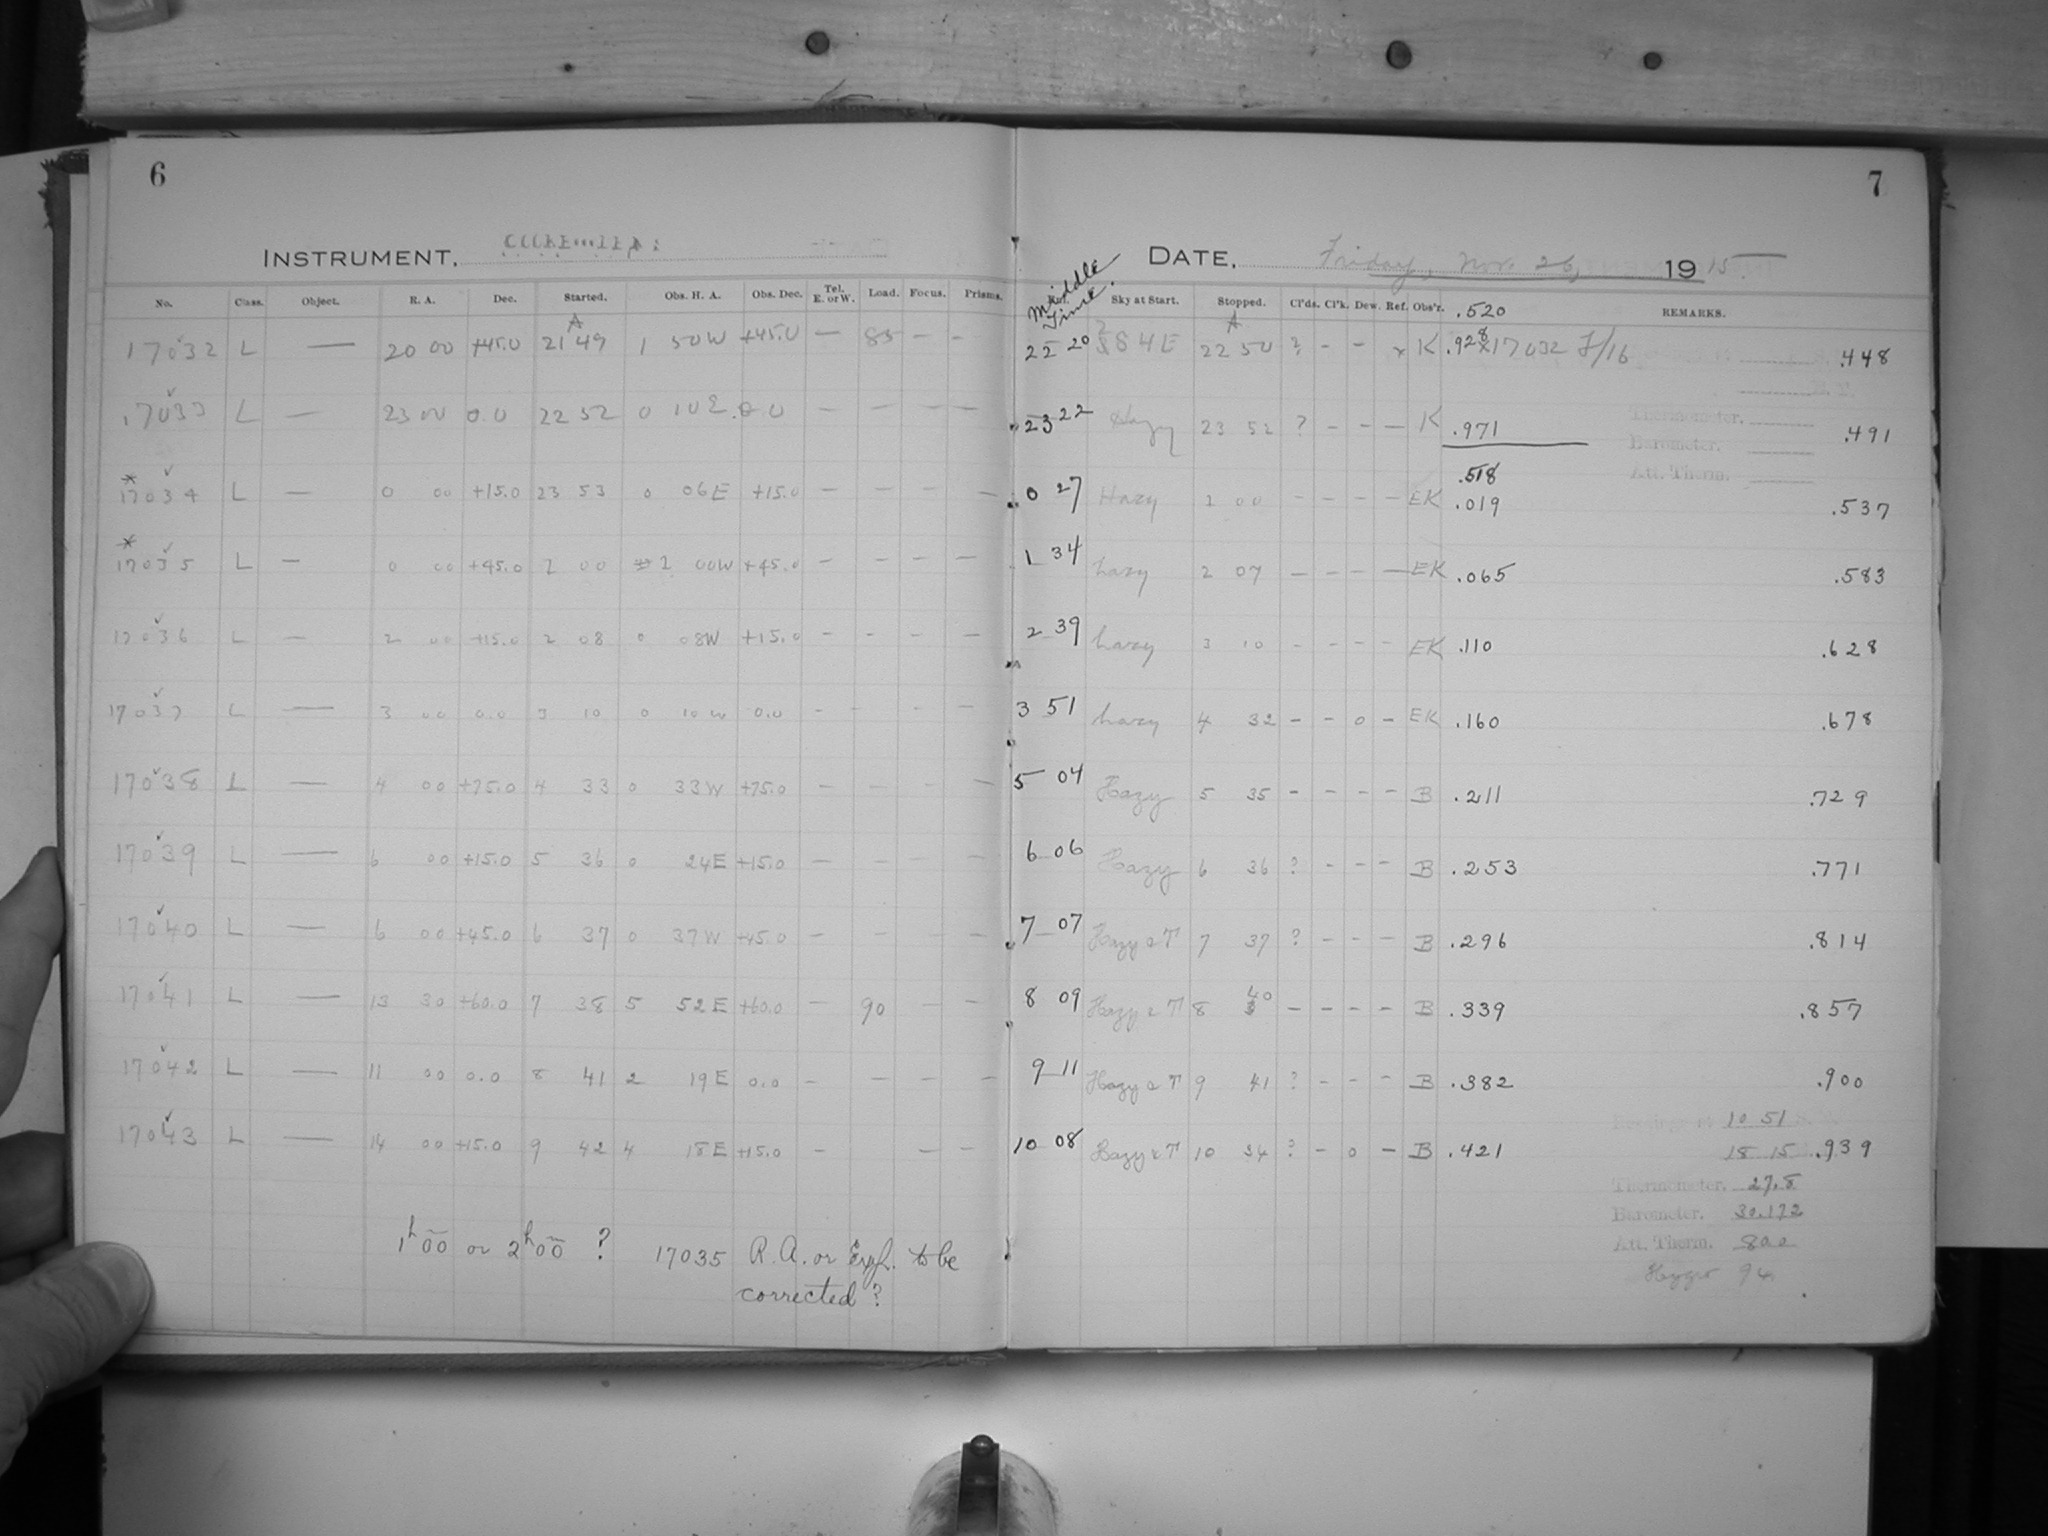 6
7
INSTRUMENT.
DATE. Friday, Nov. 26, 1915
No. Class. Object. R. A. Dec. Started. Obs. H. A. Obs. Dec. Tel. E. or W. Load. Focus. Prisms. Middle Time. Sky at Start. Stopped. Cl'ds. Cl'k. Dew. Ref. Obs'r. .520 REMARKS.
A A
17032 L — 20 00 +45.0 21 49 1 50W +45.0 — 85 - - 22 20 S 4 E 22 50 ? - - x K .928 x17032 F/16 .448
17033 L — 23 00 0.0 22 52 0 10E 0.0 — — — — 23 22 Hazy 23 52 ? - - — K .971 .491
Thermometer.
Barometer.
Att. Therm.
.518
* 17034 L — 0 00 +15.0 23 53 0 06E +15.0 — — — — 0 27 Hazy 1 00 - - - - EK .019 .537
* 17035 L — 0 00 +45.0 2 00 2 00W +45.0 — — — — 1 34 hazy 2 07 — - - — EK .065 .583
17036 L — 2 00 +15.0 2 08 0 08W +15.0 - - - — 2 39 hazy 3 10 - - - - EK .110 .628
17037 L — 3 00 0.0 3 10 0 10W 0.0 - - - — 3 51 hazy 4 32 - - 0 - EK .160 .678
17038 L — 4 00 +75.0 4 33 0 33W +75.0 — - - — 5 04 Hazy 5 35 - - - - B .211 .729
17039 L — 6 00 +15.0 5 36 0 24E +15.0 — — - — 6 06 Hazy 6 36 ? - - - B .253 .771
17040 L — 6 00 +45.0 6 37 0 37W +45.0 — — - — 7 07 Hazy & T 7 37 ? - - - B .296 .814
17041 L — 13 30 +60.0 7 38 5 52E +60.0 — 90 - - 8 09 Hazy & T 8 40 - - - - B .339 .857
17042 L — 11 00 0.0 8 41 2 19E 0.0 — — — — 9 11 Hazy & T 9 41 ? - - - B .382 .900
Readings at 10 51
17043 L — 14 00 +15.0 9 42 4 18E +15.0 — — — 10 08 Hazy & T 10 34 ? - 0 - B .421 18 15 .939
Thermometer. 27.8
Barometer. 30.172
Att. Therm. 80.0
Hygro 94
1h 00 or 2h 00 ? 17035 R.A. or Exp. to be
corrected ?